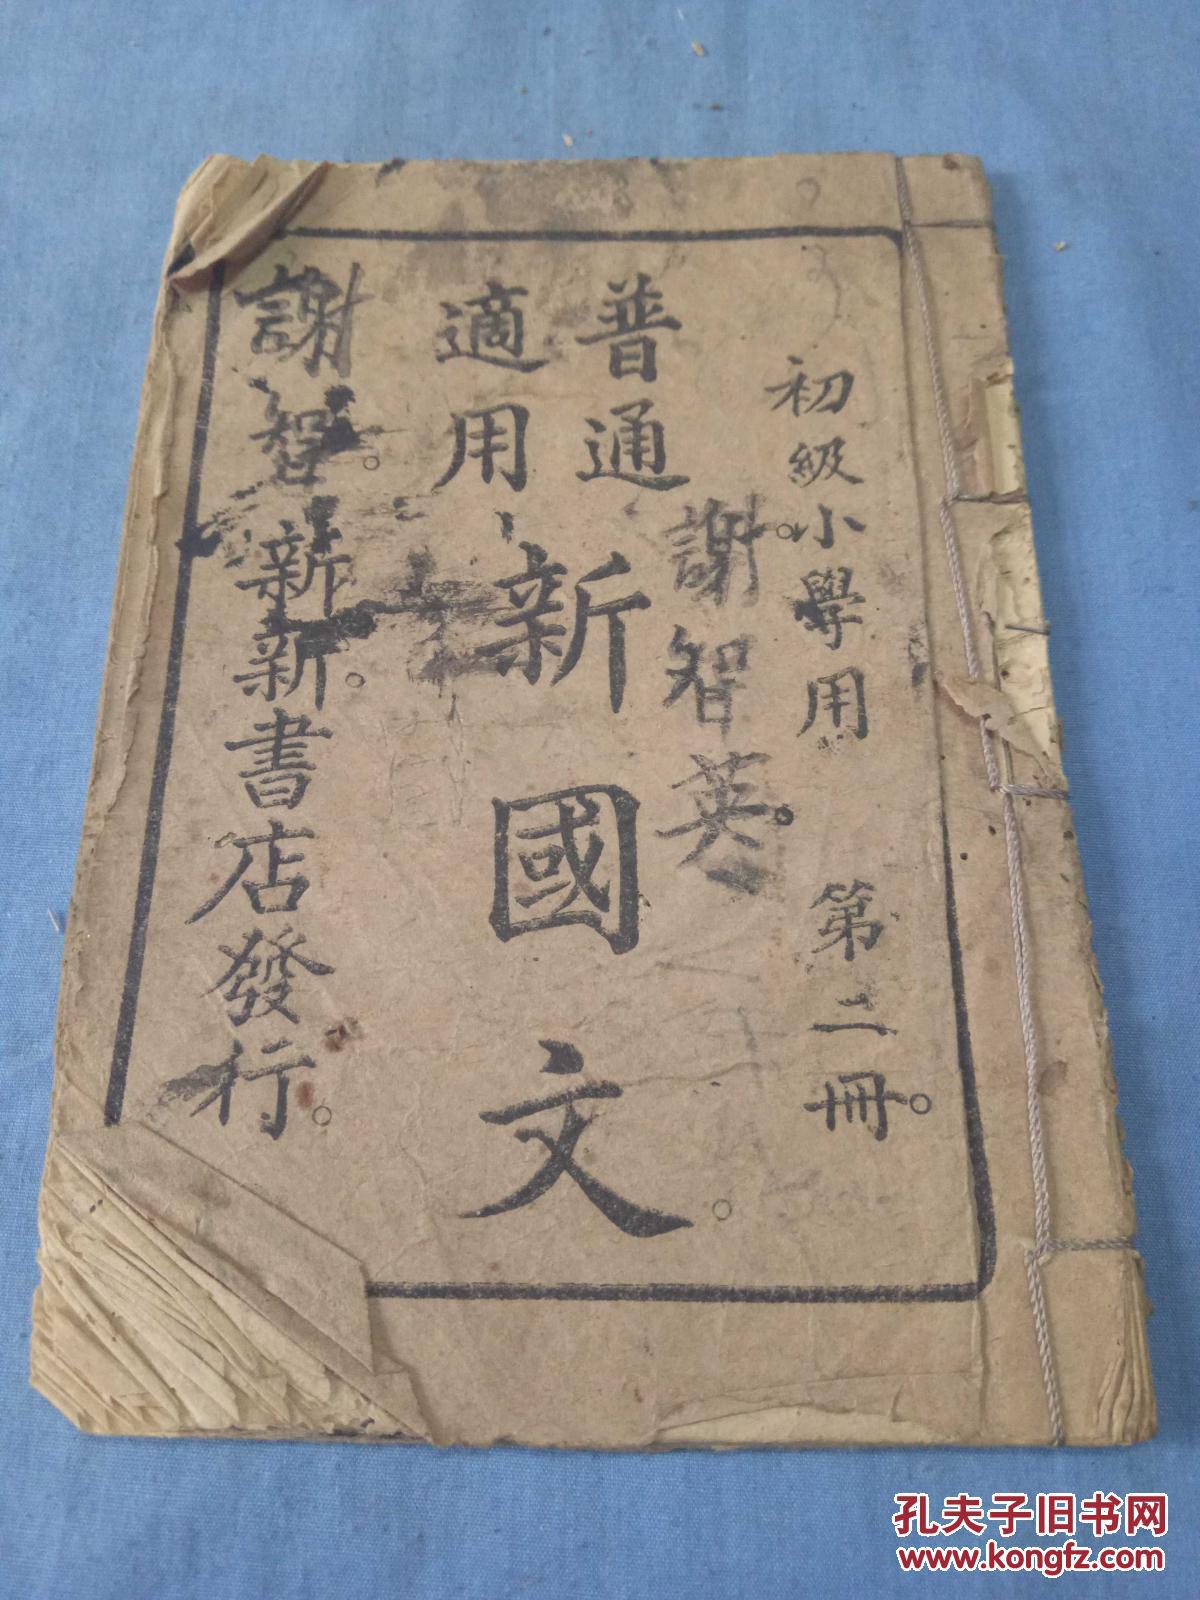 初級小學用 第二冊。
謝智英
普通
適用
新國文。
謝智
新新書店發行。
孔夫子旧书网
www.kongfz.com